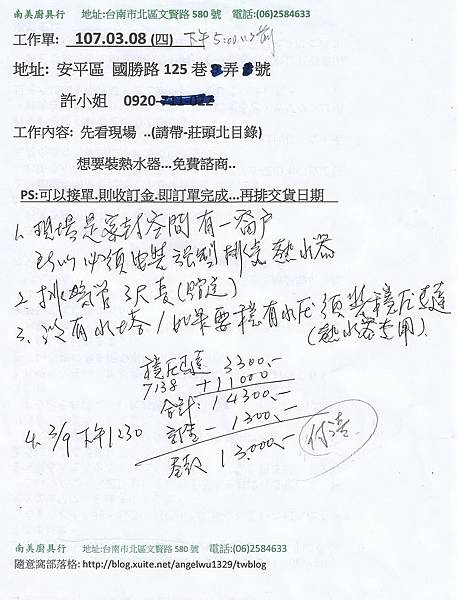 南美廚具行 地址:台南市北區文賢路 580 號 電話:(06)2584633
工作單: 107.03.08 (四) 下午5:00以前
地址: 安平區 國勝路 125 巷 弄 號
許小姐 0920
工作內容: 先看現場 ..(請帶-莊頭北目錄)
想要裝熱水器...免費諮商..
PS:可以接單.則收訂金.即訂單完成...再排交貨日期
1. 現場是密封空間有一窗戶
所以必須安裝強制排氣熱水器
2. 排煙管 3尺長
3. 沒有水塔/如果要穩有水压須裝穩压馬達
(熱水器專用).
穩压馬達 3300.-
7138 +11000
合計: 14300.-
訂金 - 1300.-
4. 3/9 下午1230
尾款 13,000.- 付清.
南美廚具行 地址:台南市北區文賢路 580 號 電話:(06)2584633
隨意窩部落格: http://blog.xuite.net/angelwu1329/twblog